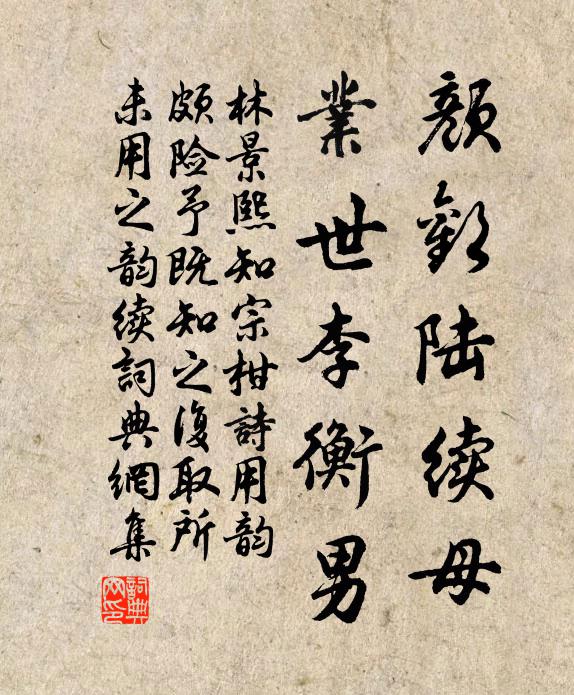 颜歡陆续母
業世李衡男
林景熙知宗柑詩用韵
颇险予既知之復取所
未用之韵续詞典網集
詞典網印